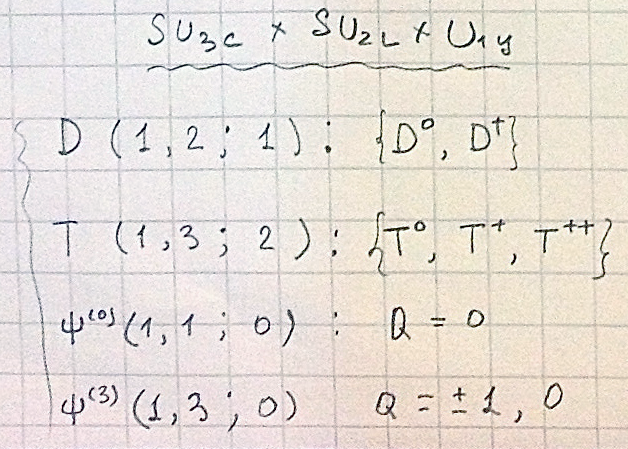 SU₃c × SU₂L × U₁y
D (1, 2 ; 1) : {D⁰, D⁺}
T (1, 3 ; 2) : {T⁰, T⁺, T⁺⁺}
ψ⁽⁰⁾ (1, 1 ; 0) : Q = 0
ψ⁽³⁾ (1, 3 ; 0) Q = ± 1, 0